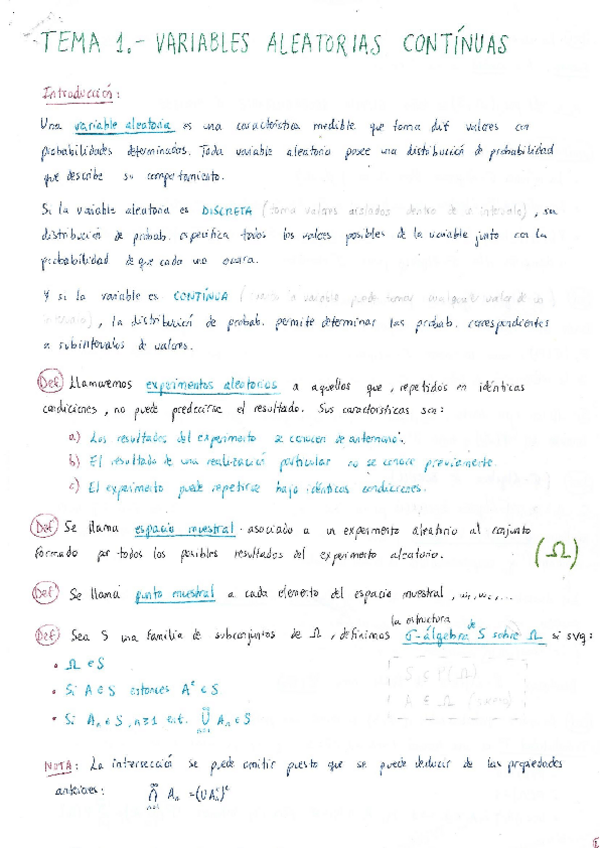 TEMA 1.- VARIABLES ALEATORIAS CONTÍNUAS
Introducción:
Una variable aleatoria es una característica medible que toma dif. valores con
probabilidades determinadas. Toda variable aleatoria posee una distribución de probabilidad
que describe su comportamiento.
Si la variable aleatoria es DISCRETA (toma valores aislados dentro de un intervalo), su
distribución de probab. especifica todos los valores posibles de la variable junto con la
probabilidad de que cada uno ocurra.
Y si la variable es CONTÍNUA ( la variable puede tomar cualquier valor de un
intervalo), la distribución de probab. permite determinar las probab. correspondientes
a subintervalos de valores.
Def Llamaremos experimentos aleatorios a aquellos que, repetidos en idénticas
condiciones, no puede predecirse el resultado. Sus características son:
a) Los resultados del experimento se conocen de antemano.
b) El resultado de una realización particular no se conoce previamente.
c) El experimento puede repetirse bajo idénticas condiciones.
Def Se llama espacio muestral asociado a un experimento aleatorio al conjunto
formado por todos los posibles resultados del experimento aleatorio. (Ω)
Def Se llama punto muestral a cada elemento del espacio muestral, w₁, w₂, ...
la estructura de
Def Sea S una familia de subconjuntos de Ω, definimos σ-álgebra S sobre Ω si svq:
• Ω ∈ S
• Si A ∈ S entonces Aᶜ ∈ S
• Si Aₙ ∈ S, n≥1 ent. ⋃ₙ₌₁^∞ Aₙ ∈ S
S ⊆ P(Ω)
A ⊆ Ω
NOTA: La intersección se puede omitir puesto que se puede deducir de las propiedades
anteriores: ⋂ₙ₌₁^∞ Aₙ = (∪Aₙᶜ)ᶜ